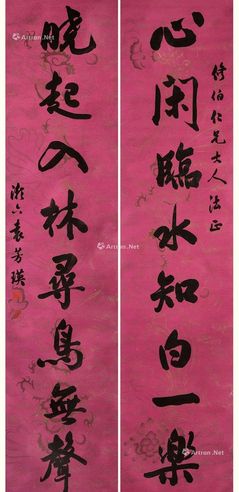 修伯仁兄大人法正
心闲臨水知白一樂
曉起入林尋鳥無聲
袁芳瑛
Artron.Net
Artron.Net
Artron.Net
Artron.Net